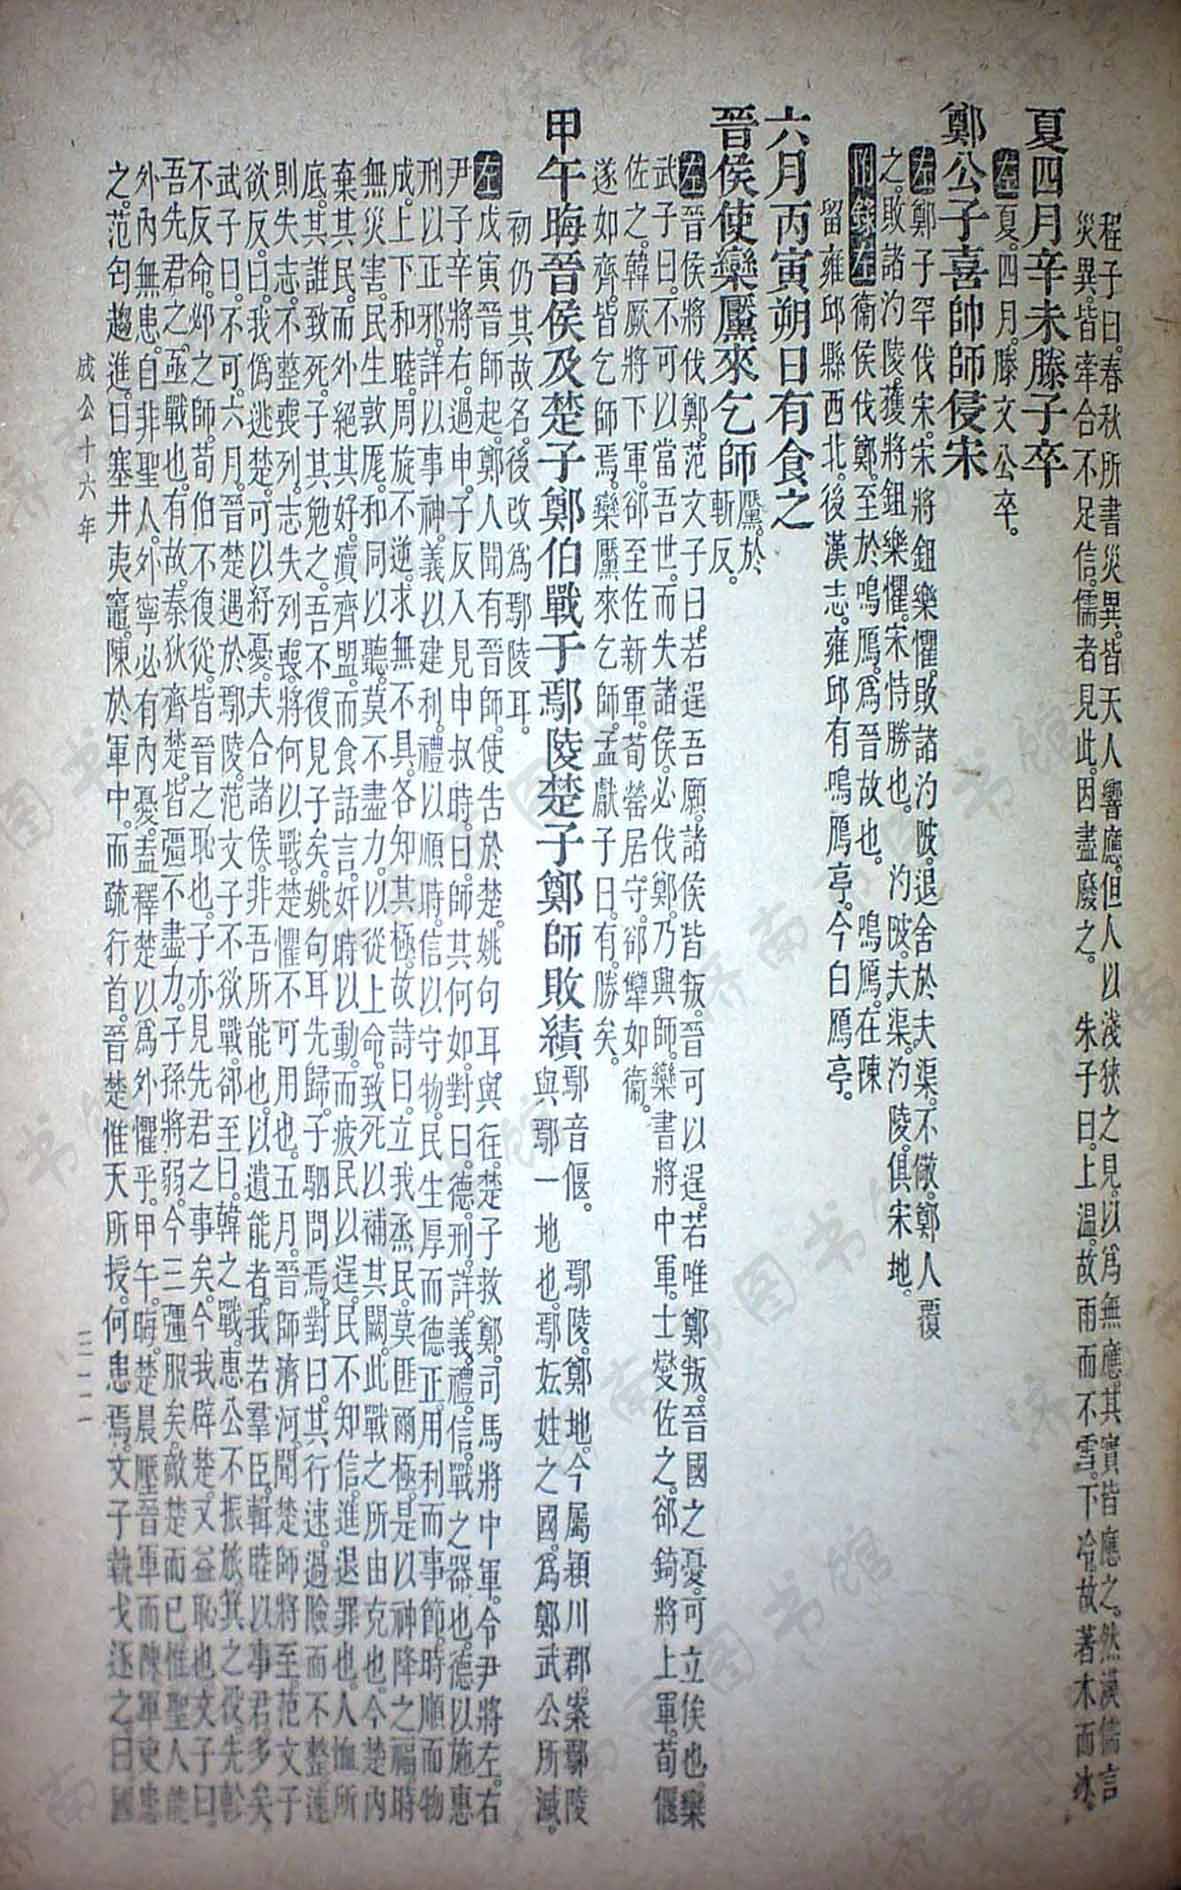 程子曰。春秋所書災異。皆天人響應。但人以淺狹之見。以爲無應。其實皆應之。然漢儒言
災異。皆牽合不足信。儒者見此。因盡廢之。　朱子曰。上温。故雨而不雪。下冷。故著木而冰。
夏四月辛未滕子卒
左夏。四月。滕文公卒。
鄭公子喜帥師侵宋
左鄭子罕伐宋。宋將鉏樂懼。敗諸汋陂。退舍於夫渠。不儆。鄭人覆
之。敗諸汋陵。獲將鉏樂懼。宋恃勝也。　汋陂。夫渠。汋陵。俱宋地。
附錄左衞侯伐鄭。至於鳴鴈。爲晉故也。　鳴鴈。在陳
留雍邱縣西北。後漢志。雍邱有鳴鴈亭。今白鴈亭。
六月丙寅朔日有食之
晉侯使欒黶來乞師　黶。於
斬反。
左晉侯將伐鄭。范文子曰。若逞吾願。諸侯皆叛。晉可以逞。若唯鄭叛。晉國之憂。可立俟也。欒
武子曰。不可以當吾世。而失諸侯。必伐鄭。乃興師。欒書將中軍。士燮佐之。郤錡將上軍。荀偃
佐之。韓厥將下軍。郤至佐新軍。荀罃居守。郤犫如衞。
遂如齊。皆乞師焉。欒黶來乞師。孟獻子曰。有勝矣。
甲午晦晉侯及楚子鄭伯戰于鄢陵楚子鄭師敗績　鄢音偃。　鄢陵。鄭地。今屬潁川郡。案鄢陵
與鄢一地也。鄢妘姓之國。爲鄭武公所滅。
初仍其故名。後改爲鄢陵耳。
左戊寅。晉師起。鄭人聞有晉師。使告於楚。姚句耳。與往。楚子救鄭。司馬將中軍。令尹將左。右
尹子辛將右。過申。子反入見申叔時。曰。師其何如。對曰。德。刑。詳。義。禮。信。戰之器也。德以施惠
刑以正邪。詳以事神。義以建利。禮以順時。信以守物。民生厚而德正。用利而事節。時順而物
成。上下和睦。周旋不逆。求無不具。各知其極。故詩曰。立我烝民。莫匪爾極。是以神降之福。時
無災害。民生敦厖。和同以聽。莫不盡力。以從上命。致死以補其闕。此戰之所由克也。今楚內
棄其民。而外絕其好。瀆齊盟。而食話言。奸時以動。而疲民以逞。民不知信。進退罪也。人恤所
底。其誰致死。子其勉之。吾不復見子矣。姚句耳先歸。子駟問焉。對曰。其行速。過險而不整。速
則失志。不整喪列。志失列喪。將何以戰。楚懼不可用也。五月。晉師濟河。聞楚師將至。范文子
欲反。曰。我僞逃楚。可以紓憂。夫合諸侯。非吾所能也。以遺能者。我若羣臣。輯睦以事君。多矣
武子曰。不可。六月。晉楚遇於鄢陵。范文子不欲戰。郤至曰。韓之戰。惠公不振旅。箕之役。先軫
不反命。邲之師。荀伯不復從。皆晉之恥也。子亦見先君之事矣。今我辟楚。又益恥也。文子曰
吾先君之亟戰也。有故。秦狄齊楚。皆彊。不盡力。子孫將弱。今三彊服矣。敵楚而已。惟聖人能
外內無患。自非聖人。外寧必有內憂。盍釋楚以爲外懼乎。甲午晦。楚晨壓晉軍而陳。軍吏患
之。范匄趨進。曰。塞井夷竈。陳於軍中。而疏行首。晉楚惟天所授。何患焉。文子執戈逐之。曰。國
成公十六年
三一一